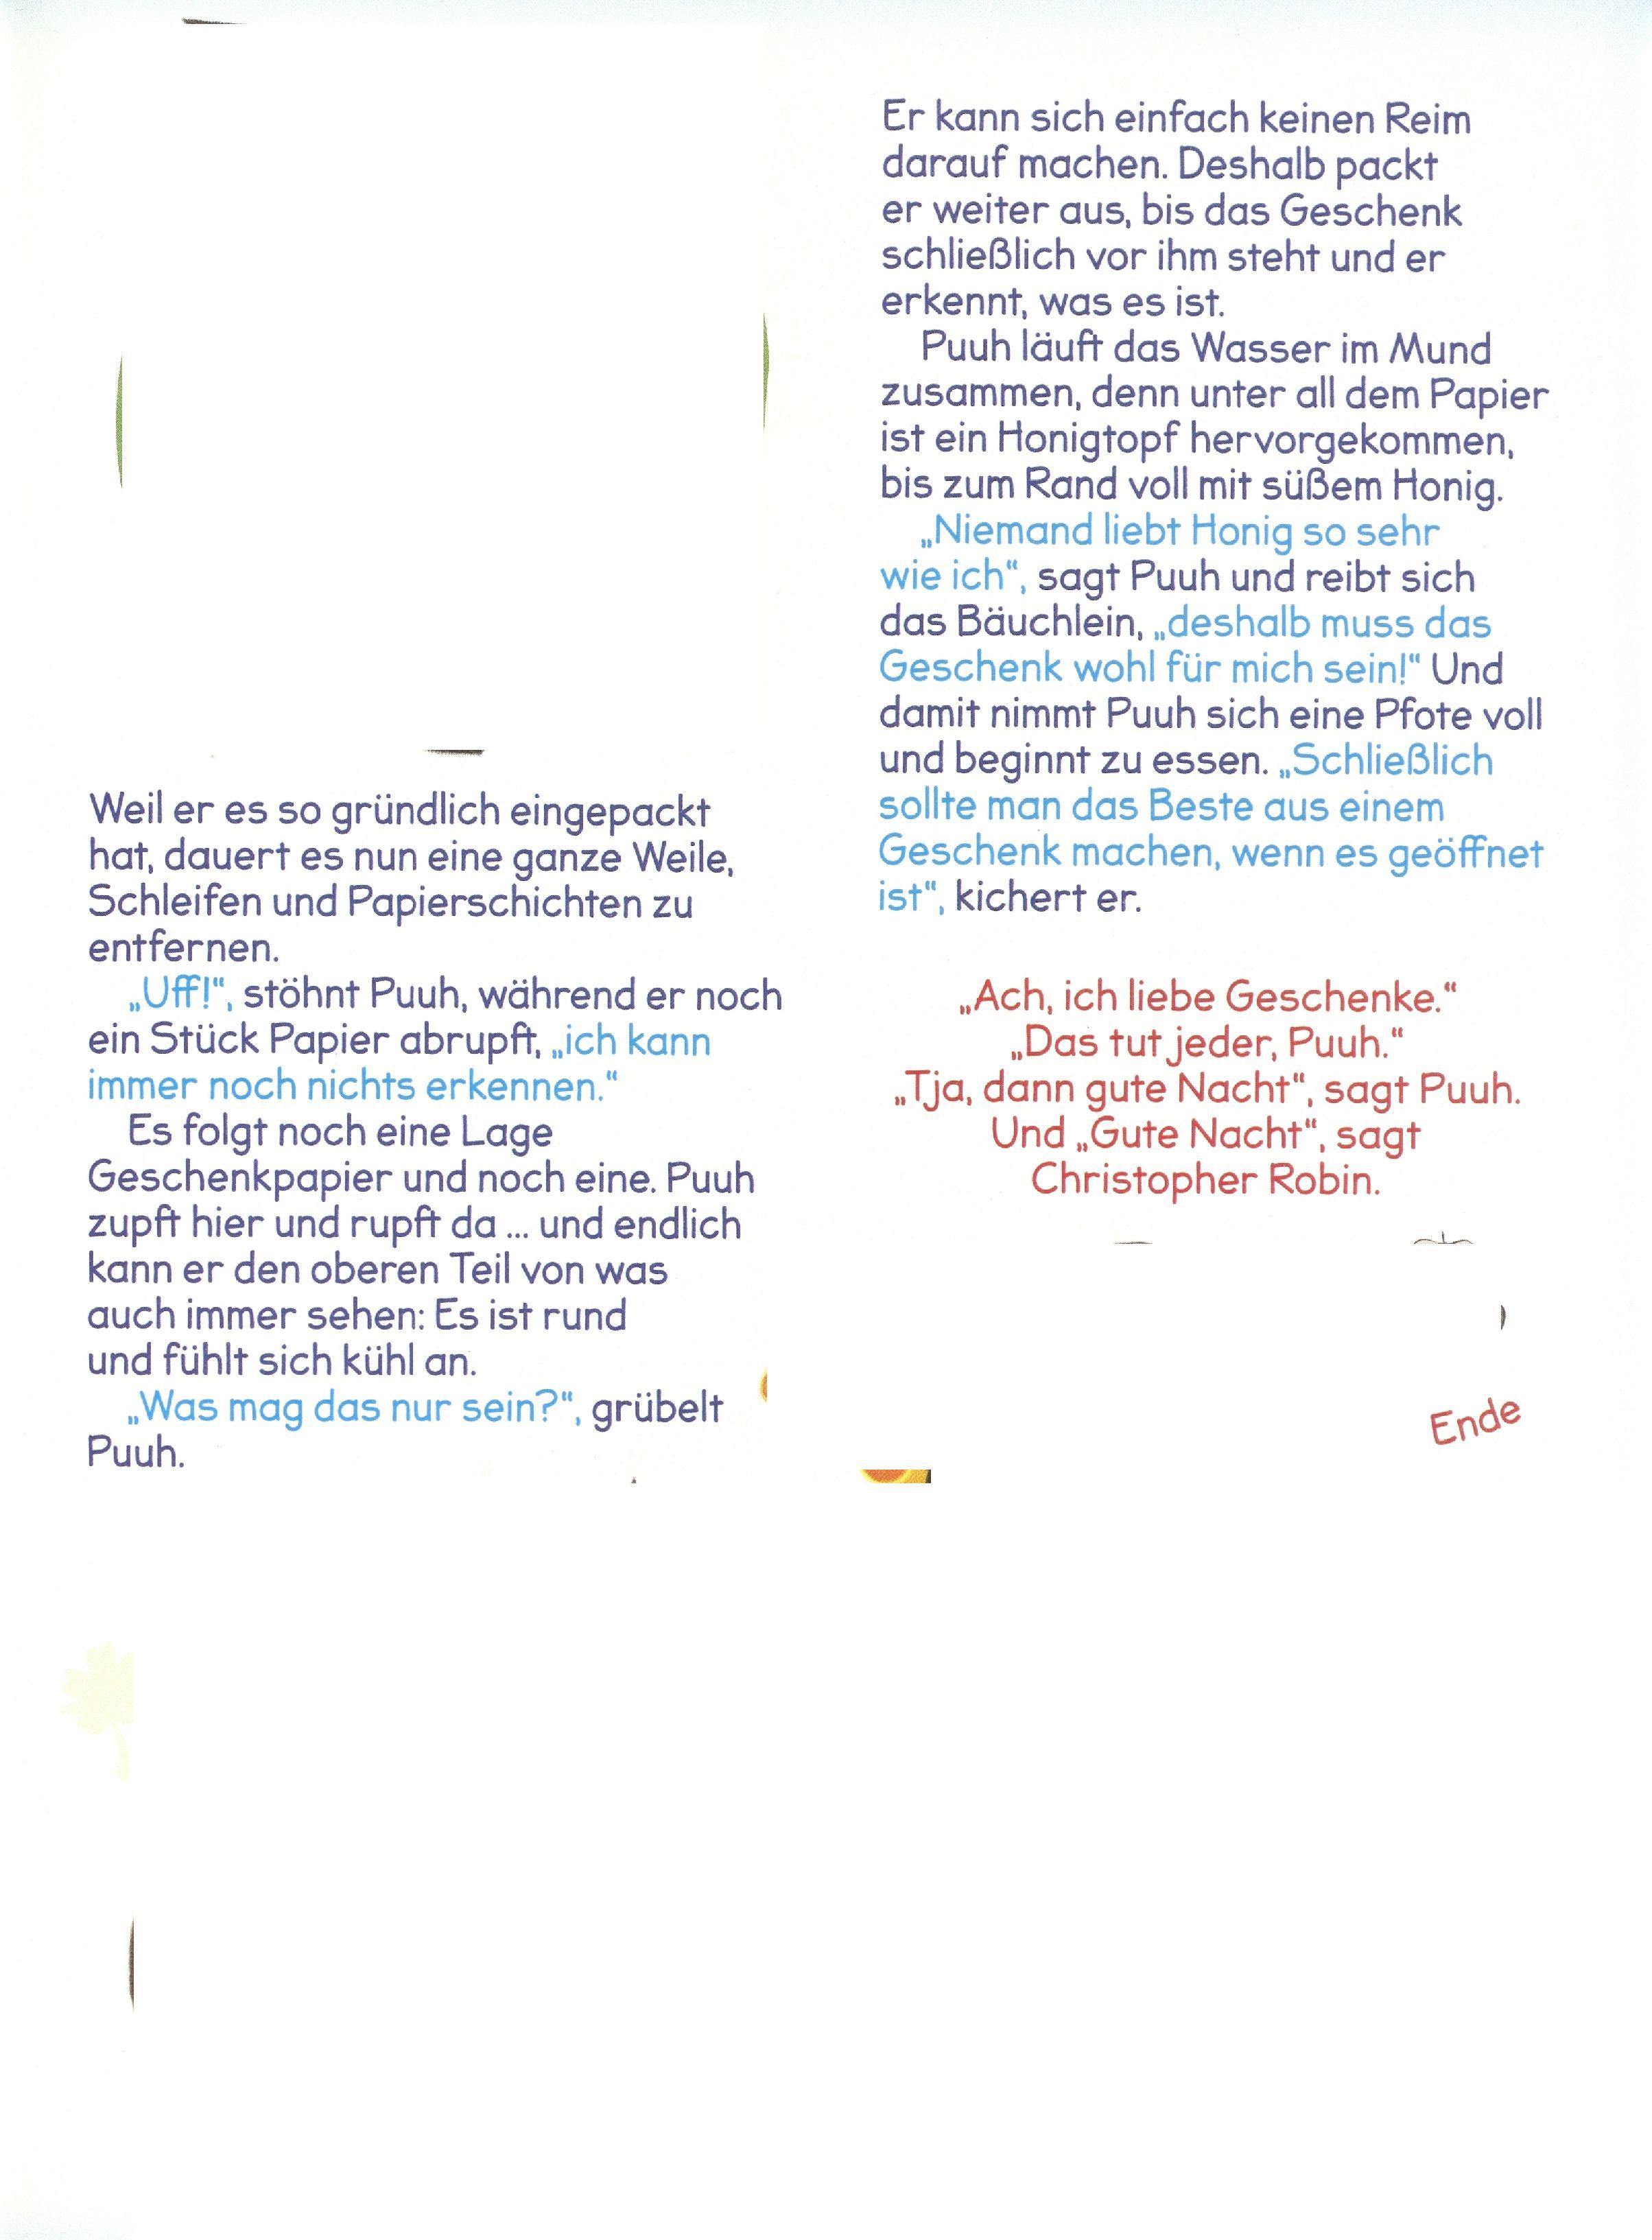 Weil er es so gründlich eingepackt
hat, dauert es nun eine ganze Weile,
Schleifen und Papierschichten zu
entfernen.
„Uff!“, stöhnt Puuh, während er noch
ein Stück Papier abrupft, „ich kann
immer noch nichts erkennen.“
Es folgt noch eine Lage
Geschenkpapier und noch eine. Puuh
zupft hier und rupft da ... und endlich
kann er den oberen Teil von was
auch immer sehen: Es ist rund
und fühlt sich kühl an.
„Was mag das nur sein?“, grübelt
Puuh.
Er kann sich einfach keinen Reim
darauf machen. Deshalb packt
er weiter aus, bis das Geschenk
schließlich vor ihm steht und er
erkennt, was es ist.
Puuh läuft das Wasser im Mund
zusammen, denn unter all dem Papier
ist ein Honigtopf hervorgekommen,
bis zum Rand voll mit süßem Honig.
„Niemand liebt Honig so sehr
wie ich“, sagt Puuh und reibt sich
das Bäuchlein, „deshalb muss das
Geschenk wohl für mich sein!“ Und
damit nimmt Puuh sich eine Pfote voll
und beginnt zu essen. „Schließlich
sollte man das Beste aus einem
Geschenk machen, wenn es geöffnet
ist“, kichert er.
„Ach, ich liebe Geschenke.“
„Das tut jeder, Puuh.“
„Tja, dann gute Nacht“, sagt Puuh.
Und „Gute Nacht“, sagt
Christopher Robin.
Ende